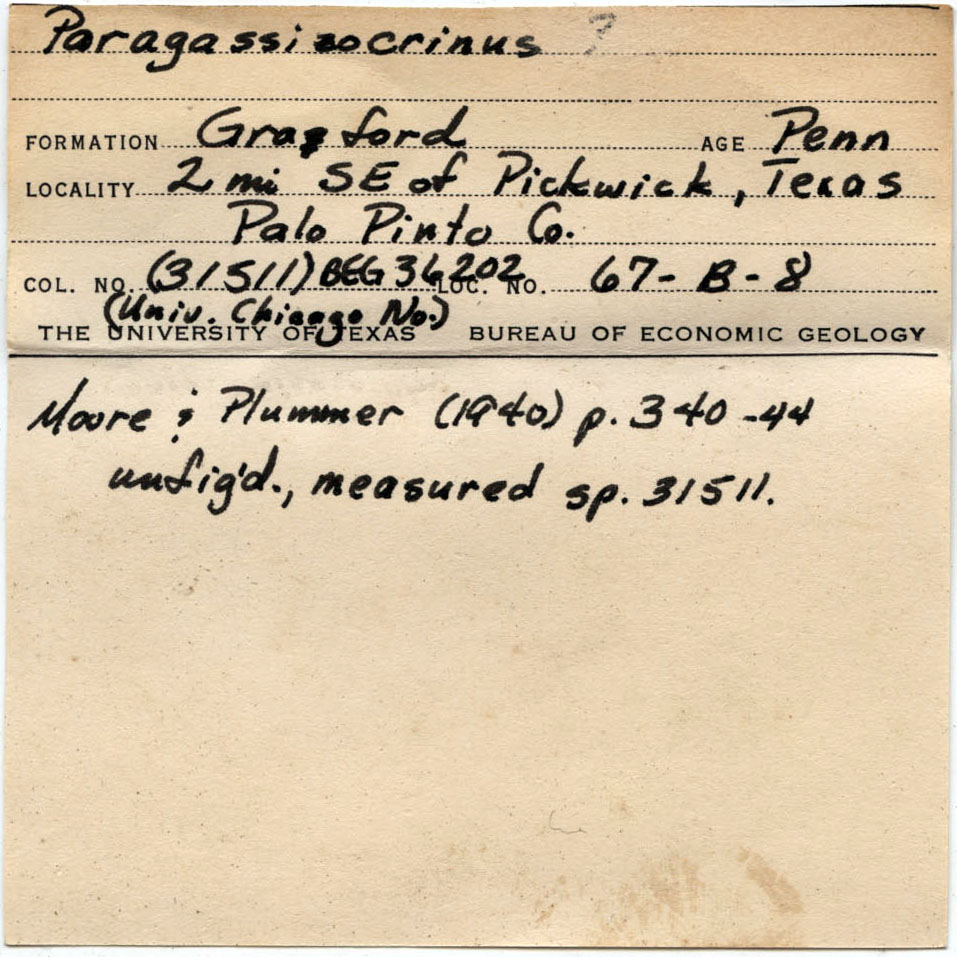 Paragassizocrinus ?
FORMATION Graford AGE Penn
LOCALITY 2 mi SE of Pickwick, Texas
Palo Pinto Co.
COL. NO. (31511) BEG 36202 LOC. NO. 67-B-8
(Univ. Chicago No.)
THE UNIVERSITY OF TEXAS BUREAU OF ECONOMIC GEOLOGY
Moore & Plummer (1940) p. 340-44
unfig'd., measured sp. 31511.